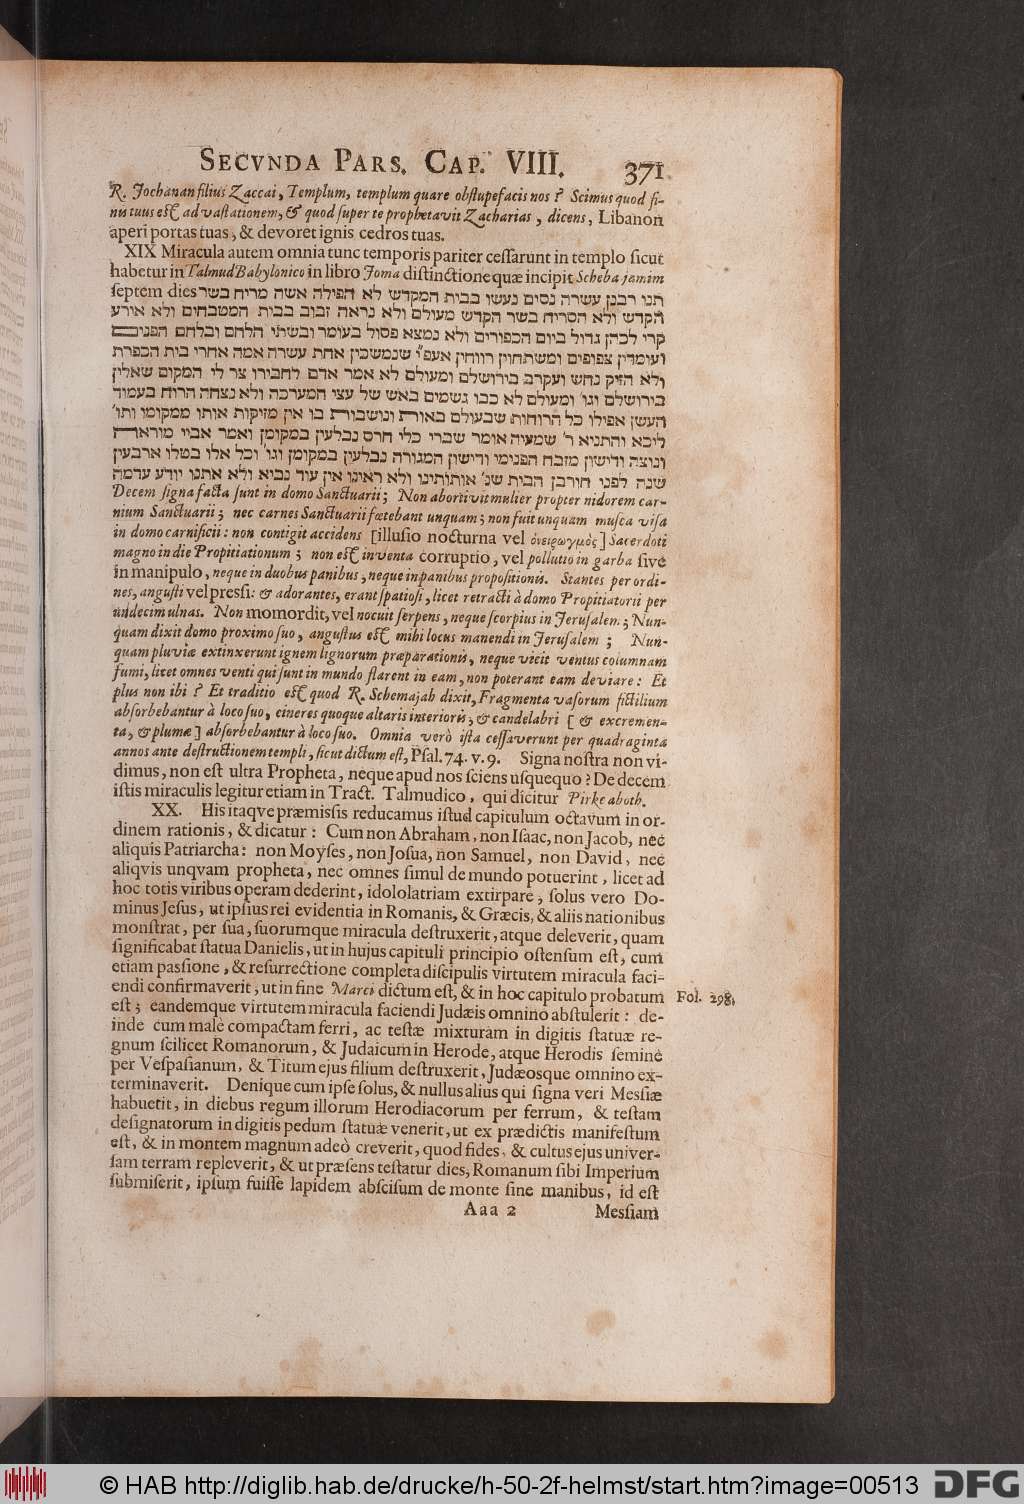 SECVNDA PARS. CAP. VIII. 371
R. Jochanan filius Zaccai, Templum, templum quare obſtupefacis nos? Scimus quod fi-
nis tuus eſt ad vaſtationem, & quod ſuper te prophetavit Zacharias, dicens, Libanon
aperi portas tuas, & devoret ignis cedros tuas.
XIX Miracula autem omnia tunc temporis pariter ceſſarunt in templo ſicut
habetur in Talmud Babylonico in libro Joma diſtinctione quæ incipit Scheba jamim
ſeptem dies תנו רבנן עשרה נסים נעשו בבית המקדש לא הפילה אשה מריח בשר
הקדש ולא הסריח בשר הקדש מעולם ולא נראה זבוב בבית המטבחים ולא אירע
קרי לכהן גדול ביום הכפורים ולא נמצא פסול בעומר ובשתי הלחם ובלחם הפנים
ועומדין צפופים ומשתחוין רווחין אעפ״י שנמשכין אחת עשרה אמה אחרי בית הכפרת
ולא הזיק נחש ועקרב בירושלם ומעולם לא אמר אדם לחבירו צר לי המקום שאלין
בירושלם וגו׳ ומעולם לא כבו גשמים באש של עצי המערכה ולא נצחה הרוח בעמוד
העשן אפילו כל הרוחות שבעולם באות ונושבות בו אין מזיקות אותו ממקומו ותו׳
ליכא והתניא ר׳ שמעיה אומר שברי כלי חרס נבלעין במקומן ואמר אביי מוראה
ונוצה ודישון מזבח הפנימי ודישון המנורה נבלעין במקומן וגו׳ וכל אלו בטלו ארבעין
שנה לפני חורבן הבית שנ׳ אותותינו ולא ראינו אין עוד נביא ולא אתנו יודע עדמה
Decem ſigna facta ſunt in domo Sanctuarii; Non abortivit mulier propter nidorem car-
nium Sanctuarii; nec carnes Sanctuarii fœtebant unquam; non fuit unquam muſca viſa
in domo carnificii: non contigit accidens [illuſio nocturna vel ὀνειρωγμὸς] Sacerdoti
magno in die Propitiationum; non eſt inventa corruptio, vel pollutio in garba ſive
in manipulo, neque in duobus panibus, neque in panibus propoſitionis. Stantes per ordi-
nes, anguſti vel preſſi: & adorantes, erant ſpatioſi, licet retracti à domo Propitiatorii per
undecim ulnas. Non momordit, vel nocuit ſerpens, neque ſcorpius in Jeruſalem; Nun-
quam dixit domo proximo ſuo, anguſtus eſt mihi locus manendi in Jeruſalem; Nun-
quam pluviæ extinxerunt ignem lignorum præparationis, neque vicit ventus columnam
fumi, licet omnes venti qui ſunt in mundo flarent in eam, non poterant eam deviare: Et
plus non ibi? Et traditio eſt quod R. Schemajah dixit, Fragmenta vaſorum fictilium
abſorbebantur à loco ſuo, cineres quoque altaris interioris, & candelabri [& excremen-
ta, & plumæ] abſorbebantur à loco ſuo. Omnia verò iſta ceſſaverunt per quadraginta
annos ante deſtructionem templi, ſicut dictum eſt, Pſal. 74. v. 9. Signa noſtra non vi-
dimus, non eſt ultra Propheta, neque apud nos ſciens uſquequo? De decem
iſtis miraculis legitur etiam in Tract. Talmudico, qui dicitur Pirke aboth.
XX. His itaqve præmiſſis reducamus iſtud capitulum octavum in or-
dinem rationis, & dicatur: Cum non Abraham, non Iſaac, non Jacob, nec
aliquis Patriarcha: non Moyſes, non Joſua, non Samuel, non David, nec
aliqvis unqvam propheta, nec omnes ſimul de mundo potuerint, licet ad
hoc totis viribus operam dederint, idololatriam extirpare, ſolus vero Do-
minus Jeſus, ut ipſius rei evidentia in Romanis, & Græcis, & aliis nationibus
monſtrat, per ſua, ſuorumque miracula deſtruxerit, atque deleverit, quam
ſignificabat ſtatua Danielis, ut in hujus capituli principio oſtenſum eſt, cum
etiam paſſione, & reſurrectione completa diſcipulis virtutem miracula faci-
endi confirmaverit, ut in fine Marci dictum eſt, & in hoc capitulo probatum
Fol. 298.
eſt; eandemque virtutem miracula faciendi Judæis omnino abſtulerit: de-
inde cum malè compactam ferri, ac teſtæ mixturam in digitis ſtatuæ re-
gnum ſcilicet Romanorum, & Judaicum in Herode, atque Herodis ſemine
per Veſpaſianum, & Titum ejus filium deſtruxerit, Judæosque omnino ex-
terminaverit. Denique cum ipſe ſolus, & nullus alius qui ſigna veri Meſſiæ
habuerit, in diebus regum illorum Herodiacorum per ferrum, & teſtam
deſignatorum in digitis pedum ſtatuæ venerit, ut ex prædictis manifeſtum
eſt, & in montem magnum adeò creverit, quod fides, & cultus ejus univer-
ſam terram repleverit, & ut præſens teſtatur dies, Romanum ſibi Imperium
ſubmiſerit, ipſum fuiſſe lapidem abſciſum de monte ſine manibus, id eſt
Aaa 2 Meſſiam
© HAB http://diglib.hab.de/drucke/h-50-2f-helmst/start.htm?image=00513 DFG